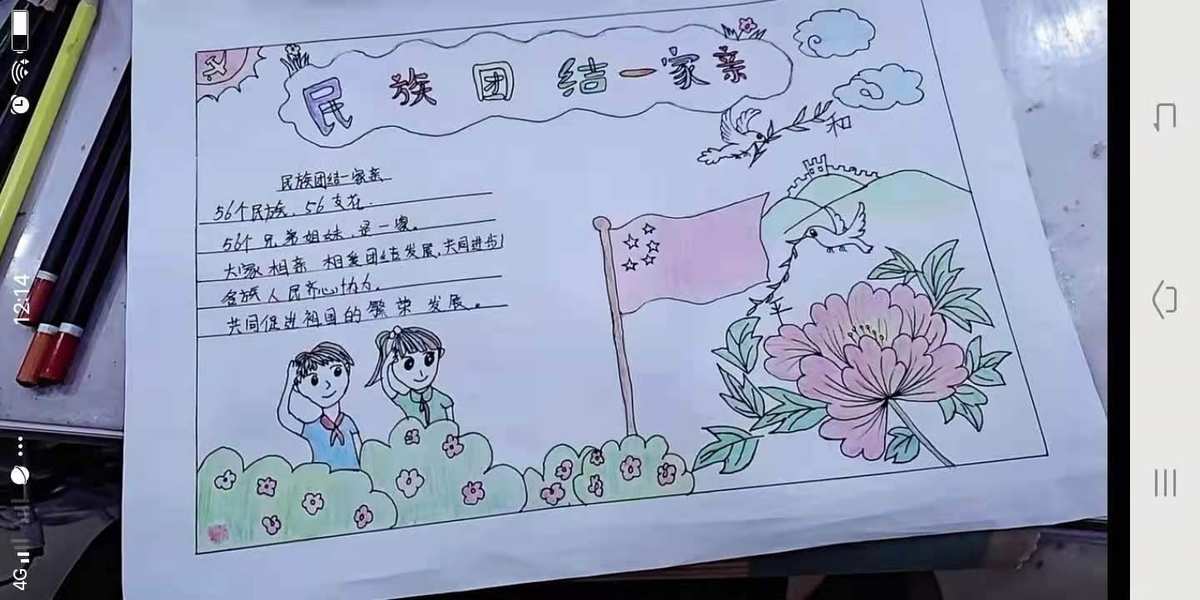 民族团结一家亲
和
平
民族团结一家亲
56个民族、56支花.
56个兄弟姐妹 是一家。
大家相亲 相爱团结发展,共同进步!
各族人民齐心协力、
共同促进祖国的繁荣发展。
12:14
4G